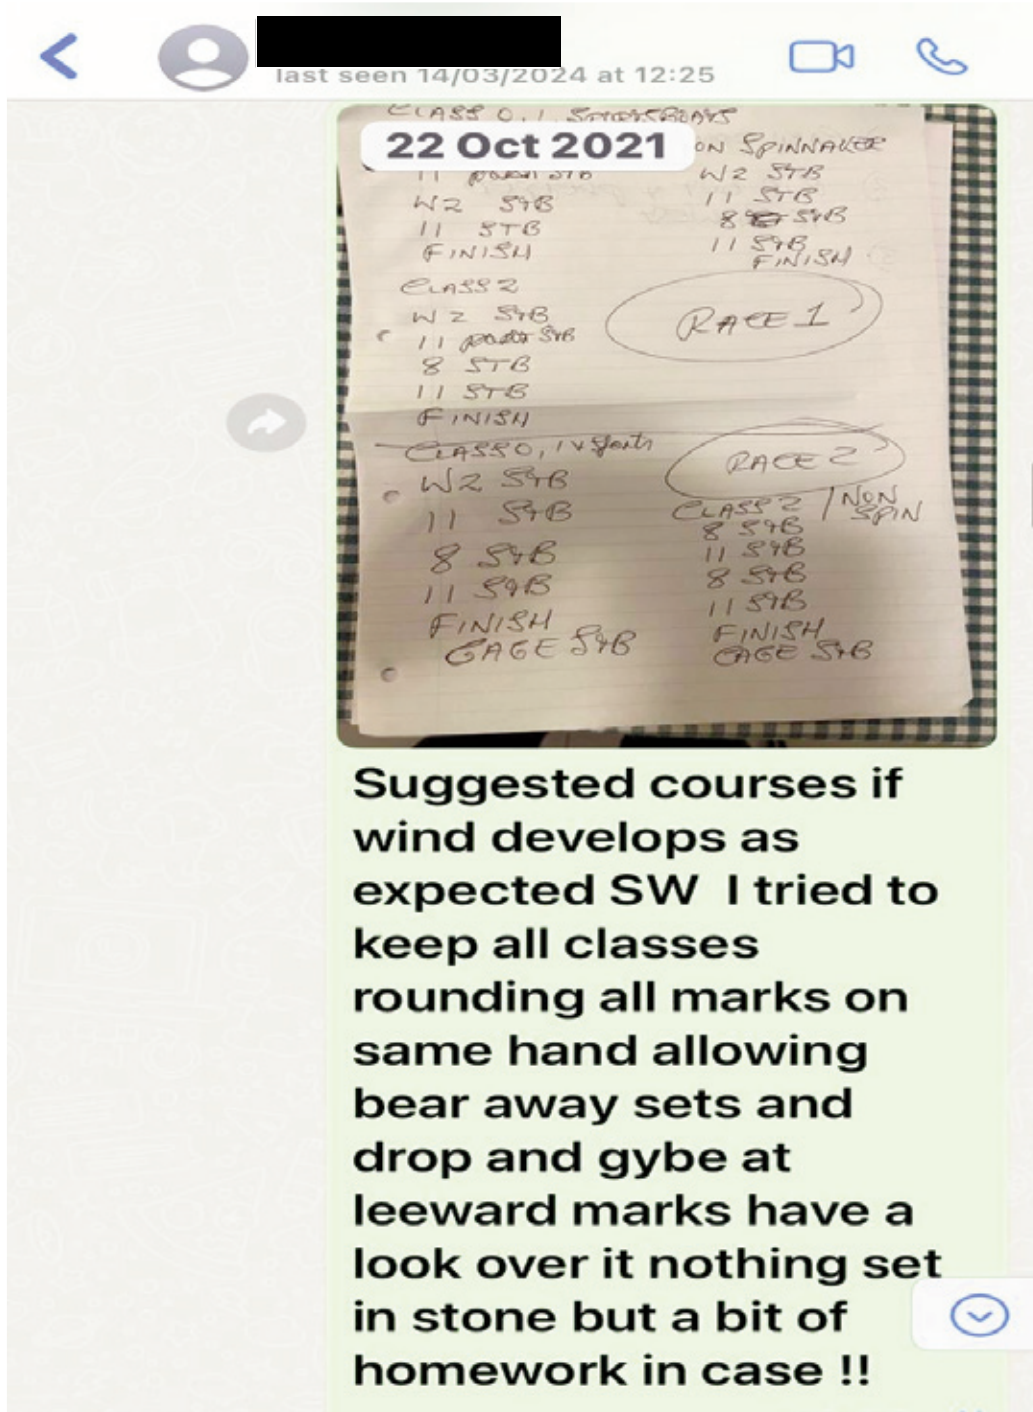 last seen 14/03/2024 at 12:25
CLASS 0, 1 SPORTSBOATS
22 Oct 2021
ON SPINNAKER
11 STB
W2 STB
11 STB
FINISH
W2 STB
11 STB
8 STB
11 STB
FINISH
CLASS 2
W2 STB
11 STB
8 STB
11 STB
FINISH
RACE 1
CLASS 0, 1 + Sports
W2 STB
11 STB
8 STB
11 STB
FINISH
GAGE STB
RACE 2
CLASS 2 / NON
SPIN
8 STB
11 STB
8 STB
11 STB
FINISH
GAGE STB
Suggested courses if
wind develops as
expected SW I tried to
keep all classes
rounding all marks on
same hand allowing
bear away sets and
drop and gybe at
leeward marks have a
look over it nothing set
in stone but a bit of
homework in case !!